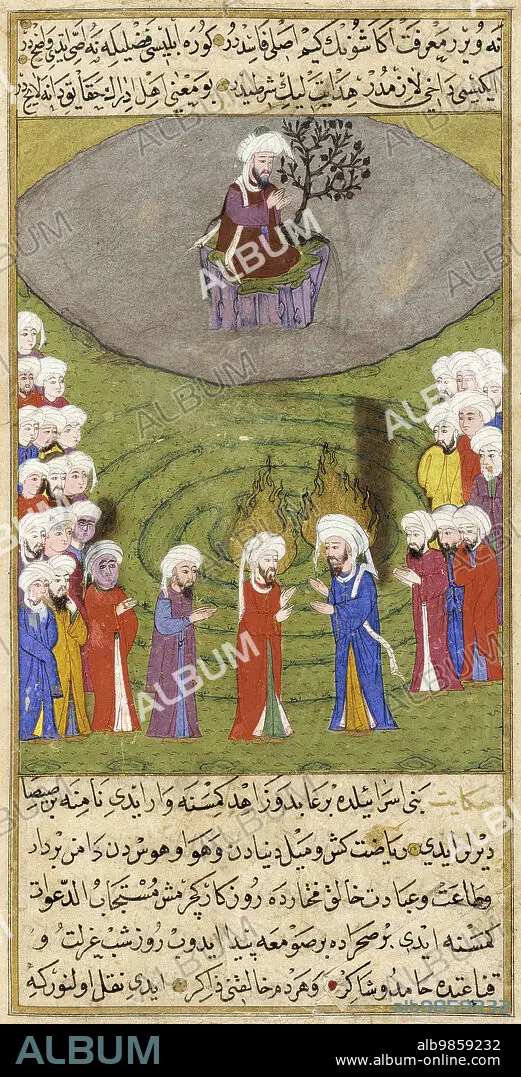 نه ویرر معرفت اکا شونك کیم اصلی فاسددر کوره ابلیسی فضلیله نه
ایکیسی داخی لازمدر هدایت لیك شرطیدر بو معنیی اهل ادراك
حکایت بنی اسرائیلده بر عابد و زاهد کمسنه وار ایدی نامنه برصیصا
دیرلر ایدی ریاضت کش و میل دنیادن و هوا و هوسدن دامن بردار
و طاعت و عبادت خالق مختارده روزکار کچرمش مستجاب الدعوات
کمسنه ایدی بر صحراده بر صومعه پیدا ایدوب روز شب عزلت و
قناعتده حامد و شاکر و هر دم خالقنی ذاکر ایدی نقل اولنورکه
ALBUM
alb9859232
ALBUM
alb9859232
www.album-online.com